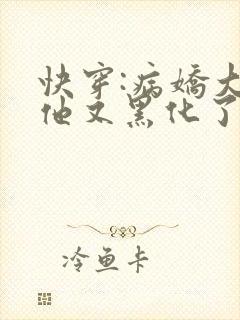 快穿:病娇大
他又黑化了
冷鱼卡